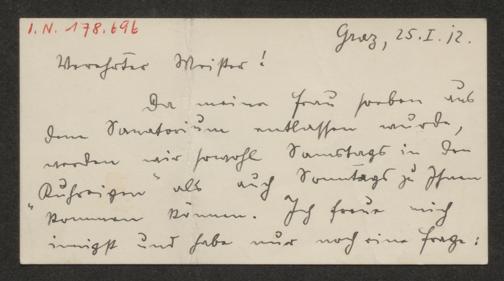 I.N. 178.696
Graz, 25.I.12.
Verehrter Meister!
Da meine Frau soeben aus
dem Sanatorium entlassen wurde,
werden wir sowohl Samstags in den
"Kuhreigen" als auch Sonntags zu Ihnen
kommen können. Ich freue mich
innigst und habe nur noch eine Frage: